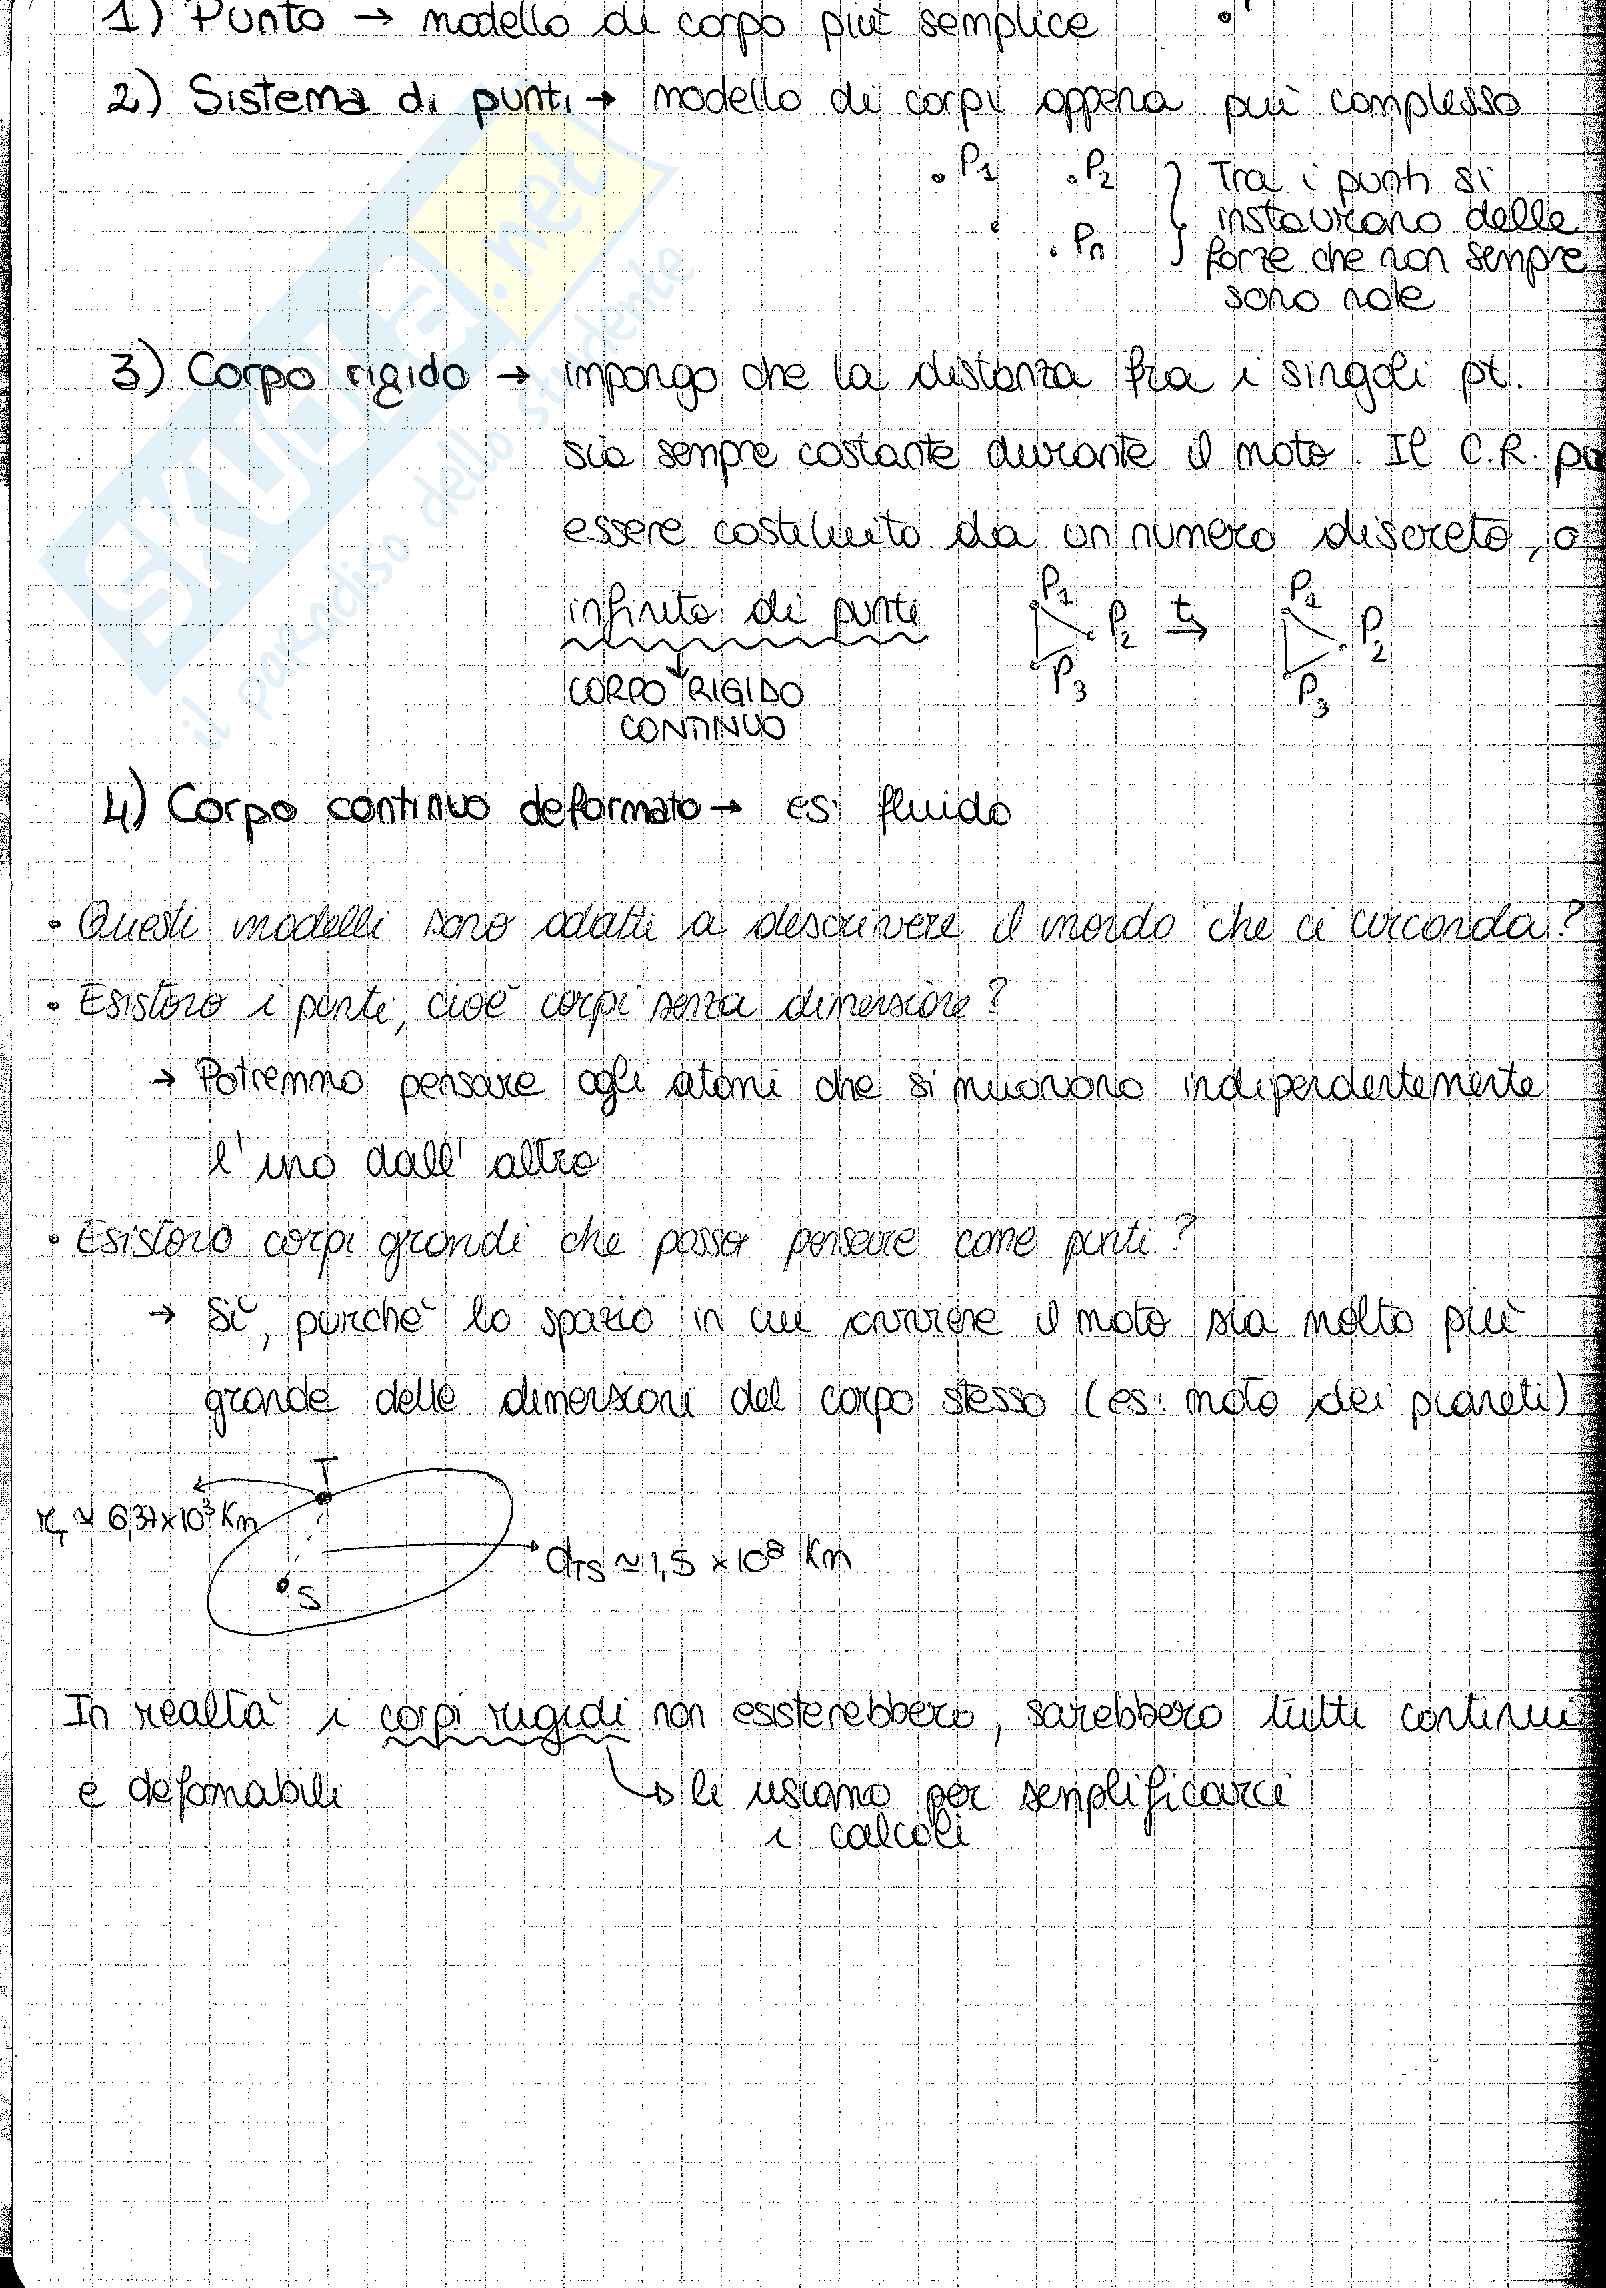 1) Punto → modello di corpo più semplice
2) Sistema di punti → modello di corpi appena più complesso
P1 P2 Pn
Tra i punti si
instaurano delle
forze che non sempre
sono note
3) Corpo rigido → impongo che la distanza fra i singoli pt.
sia sempre costante durante il moto. Il C.R. pu
essere costituito da un numero discreto, o
infinito di punti
P1 P2 P3 t → P1 P2 P3
CORPO RIGIDO
CONTINUO
4) Corpo continuo deformato → es: fluido
• Questi modelli sono adatti a descrivere il mondo che ci circonda?
• Esistono i punti, cioè corpi senza dimensione?
→ Potremmo pensare agli atomi che si muovono indipendentemente
l'uno dall'altro
• Esistono corpi grandi che posso pensare come punti?
→ Sì, purché lo spazio in cui avviene il moto sia molto più
grande delle dimensioni del corpo stesso (es: moto dei pianeti)
T
rT ≃ 6,37×10³ Km
dTS ≃ 1,5 × 10⁸ Km
S
In realtà i corpi rigidi non esisterebbero, sarebbero tutti continui
e defomabili
→ li usiamo per semplificarci
i calcoli
SKUOLA.net
il paradiso dello studente